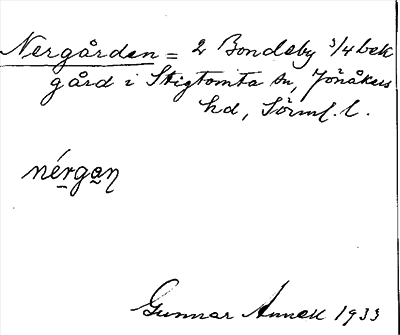 Nergården = 2 Bondeby 3/4 bek
gård i Stigtomta sn, Jönåkers
hd, Sörml. l.
nérgan
Gunnar Annell 1933